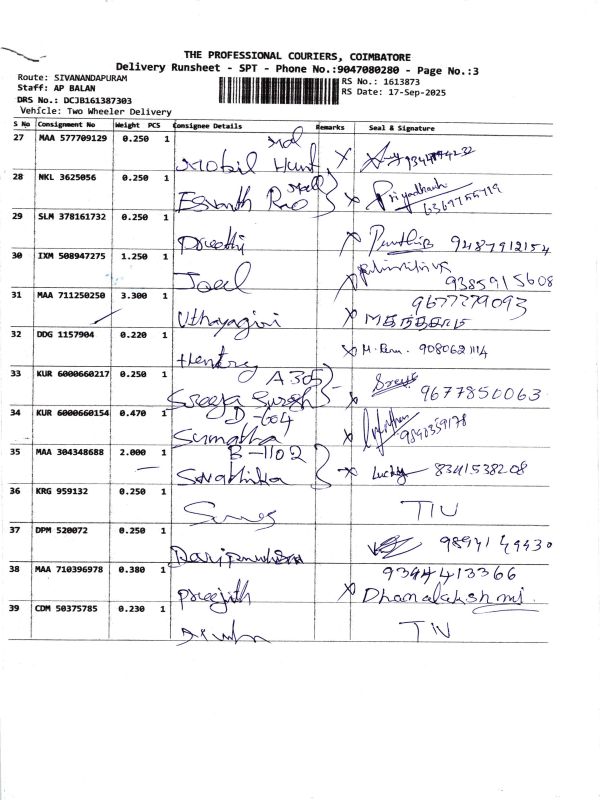 THE PROFESSIONAL COURIERS, COIMBATORE
Delivery Runsheet - SPT - Phone No.:9047080280 - Page No.:3
Route: SIVANANDAPURAM
RS No.: 1613873
Staff: AP BALAN
RS Date: 17-Sep-2025
DRS No.: DCJB161387303
Vehicle: Two Wheeler Delivery
S No Consignment No Weight PCS Consignee Details Remarks Seal & Signature
27 MAA 577709129 0.250 1 Mobil Hunt
28 NKL 3625056 0.250 1 Esvanth Rao Priyadhanh 6369755719
29 SLM 378161732 0.250 1 Preethi 9487912154
30 IXM 508947275 1.250 1 Joel 9385915608
31 MAA 711250250 3.300 1 Uthayagiri 9677779093
32 DDG 1157904 0.220 1 Hentry
33 KUR 6000660217 0.250 1 A 305 Sreeja Suresh Sreeja 9677850063
34 KUR 6000660154 0.470 1 D-604 Sumatha
35 MAA 304348688 2.000 1 B-1102 Swathika Lucky 8341538208
36 KRG 959132 0.250 1 TIU
37 DPM 520072 0.250 1
38 MAA 710396978 0.380 1 Preejith 9344413366 Dhanalakshmi
39 CDM 50375785 0.230 1 TIU